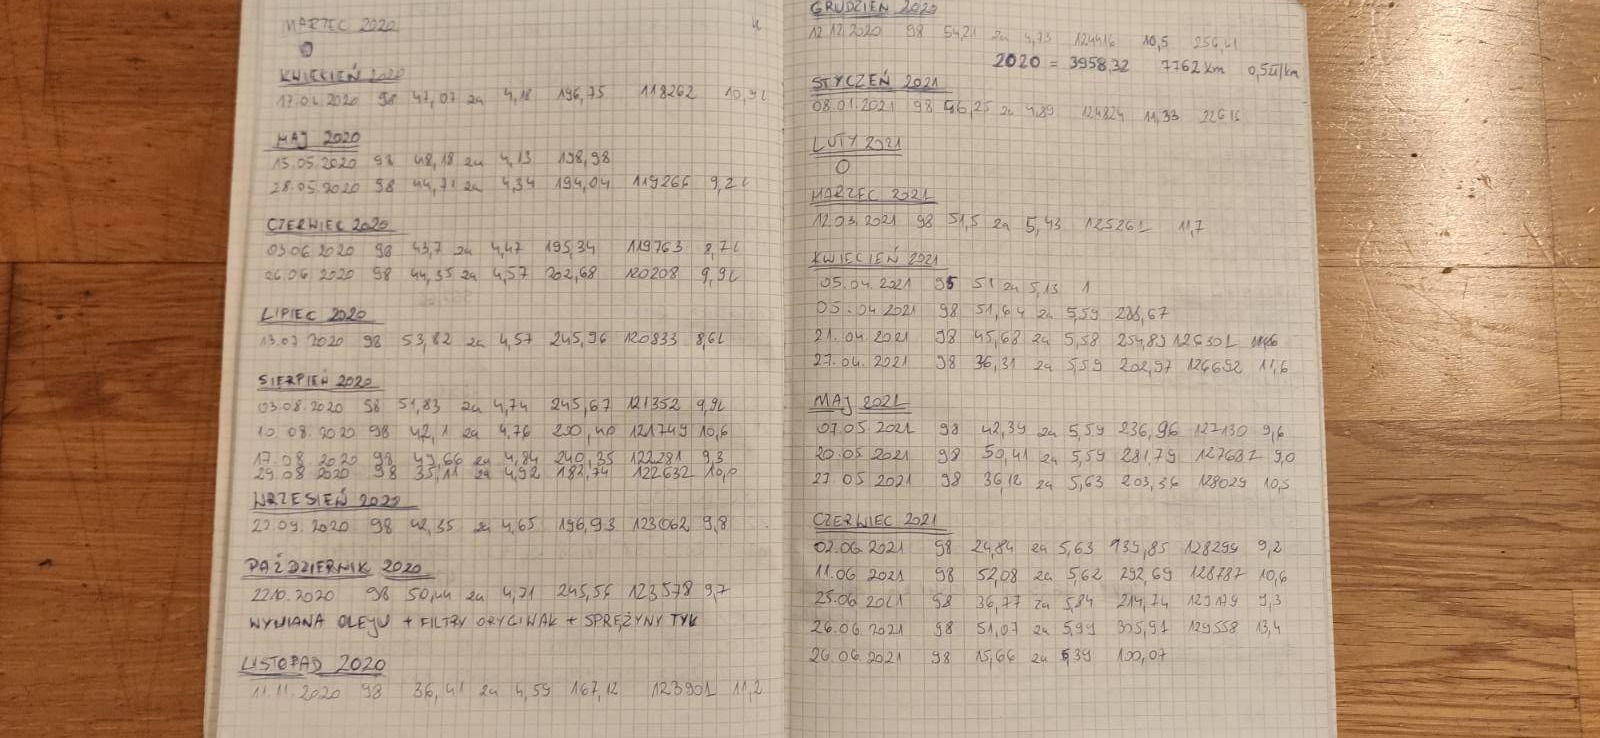 MARZEC 2020
0
KWIECIEŃ 2020
17.04 2020 98 47,07 za 4,18 196,75 118262 10,9L
MAJ 2020
15.05.2020 98 48,18 za 4,13 198,98
28.05.2020 98 44,71 za 4,34 194,04 119266 9,2L
CZERWIEC 2020
03.06 2020 98 43,7 za 4,47 195,34 119763 8,7L
26.06 2020 98 44,35 za 4,57 202,68 120208 9,9L
LIPIEC 2020
13.07 2020 98 53,82 za 4,57 245,96 120833 8,6L
SIERPIEŃ 2020
03.08.2020 98 51,83 za 4,74 245,67 121352 9,9L
10.08.2020 98 42,1 za 4,76 200,40 121749 10,6
17.08.2020 98 49,66 za 4,84 240,35 122281 9,3
29.08 2020 98 35,11 za 4,92 182,74 122632 10,0
WRZESIEŃ 2020
27.09.2020 98 42,35 za 4,65 196,93 123062 9,8
PAŹDZIERNIK 2020
22.10.2020 98 50,44 za 4,71 245,56 123578 9,7
WYMIANA OLEJU + FILTRY + SPRĘŻYNY TYŁ
LISTOPAD 2020
11.11.2020 98 36,41 za 4,59 167,12 123901 11,2
GRUDZIEŃ 2020
12.12.2020 98 54,21 za 4,73 124416 10,5 256,41
2020 = 3958,32 7762 km 0,5zł/km
STYCZEŃ 2021
08.01.2021 98 46,25 za 4,89 124824 11,33 226,16
LUTY 2021
0
MARZEC 2021
12.03.2021 98 51,5 za 5,43 125261 11,7
KWIECIEŃ 2021
05.04.2021 95 51 za 5,13 1
05.04 2021 98 51,64 za 5,59 288,67
21.04.2021 98 45,68 za 5,58 254,89 126301
27.04.2021 98 36,31 za 5,59 202,97 126692 11,6
MAJ 2021
07.05 2021 98 42,39 za 5,59 236,96 127130 9,6
20.05 2021 98 50,41 za 5,59 281,79 127687 9,0
27.05 2021 98 36,12 za 5,63 203,36 128029 10,5
CZERWIEC 2021
02.06 2021 98 24,84 za 5,63 139,85 128299 9,2
11.06 2021 98 52,08 za 5,62 292,69 128787 10,6
25.06 2021 98 36,77 za 5,84 214,74 129179 9,3
26.06 2021 98 51,07 za 5,99 305,91 129558 13,4
26.06 2021 98 15,66 za 6,39 100,07